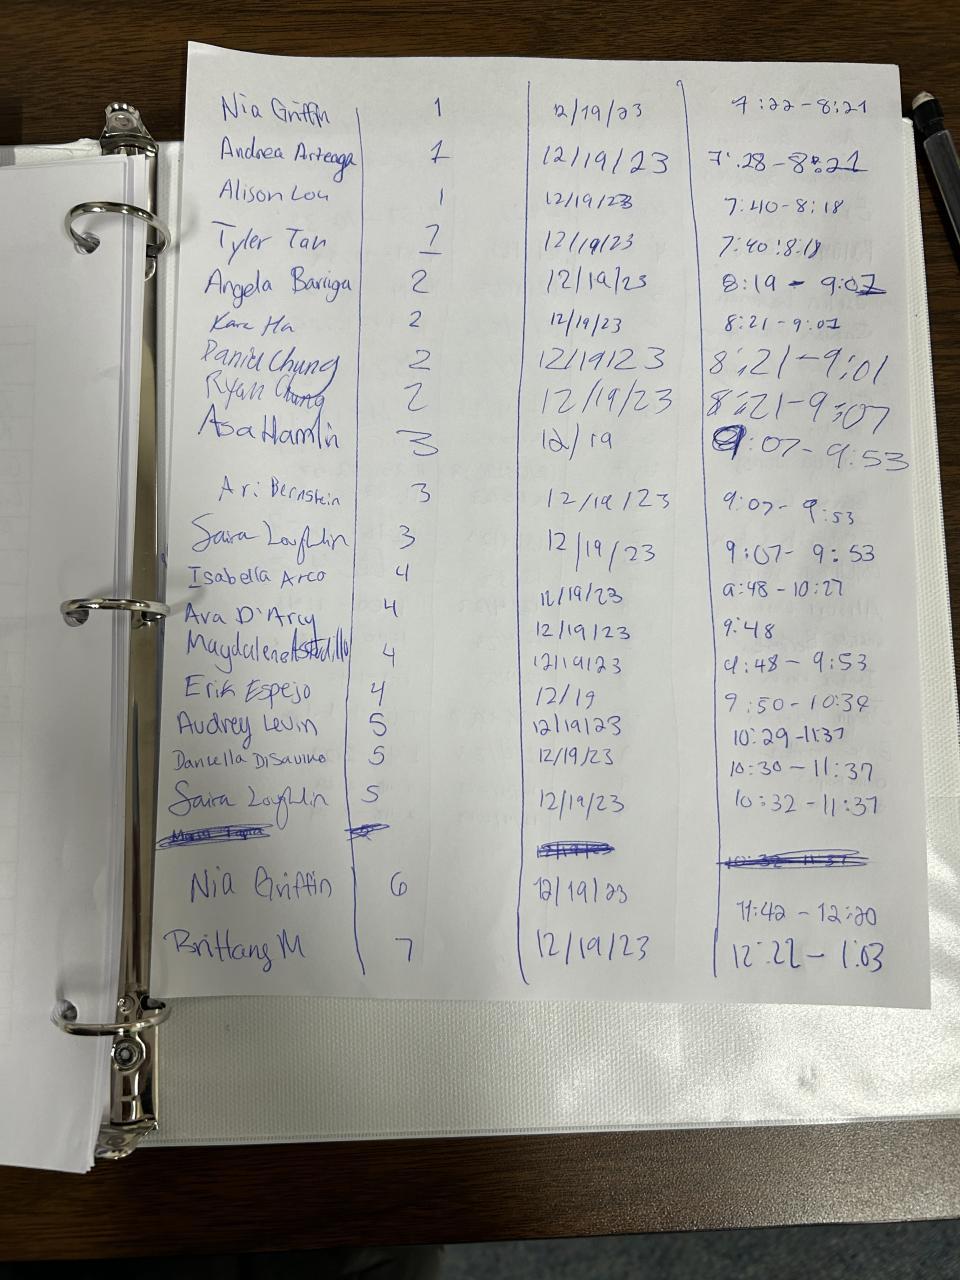 Nia Griffin 1 12/19/23 7:22-8:21
Andrea Arteaga 1 12/19/23 7:28-8:21
Alison Lou 1 12/19/23 7:40-8:18
Tyler Tan 1 12/19/23 7:40:8:18
Angela Barriga 2 12/19/23 8:19 - 9:07
Kara Ha 2 12/19/23 8:21-9:01
Daniel Chung 2 12/19/23 8:21-9:01
Ryan Chung 2 12/19/23 8:21-9:07
Asa Hamlin 3 12/19 9:07-9:53
Ari Bernstein 3 12/19/23 9:07-9:53
Saira Loughlin 3 12/19/23 9:07-9:53
Isabella Arco 4 12/19/23 9:48-10:27
Ava D'Arcy 4 12/19/23 9:48
Magdalene Astudillo 4 12/19/23 9:48-9:53
Erik Espejo 4 12/19 9:50-10:34
Audrey Levin 5 12/19/23 10:29-11:37
Daniella DiSavino 5 12/19/23 10:30-11:37
Saira Loughlin 5 12/19/23 10:32-11:37
Nia Griffin 6 12/19/23 11:42-12:20
Brittany M 7 12/19/23 12:22-1:03